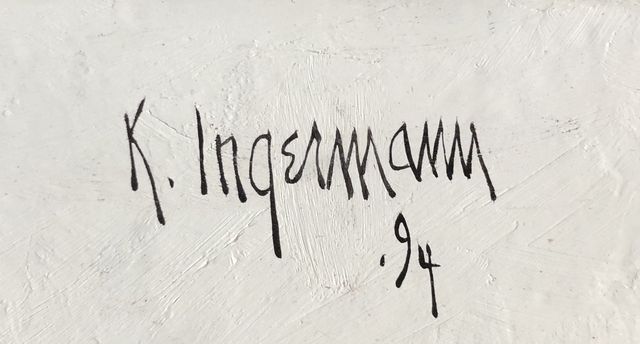 K. Ingermann
.94